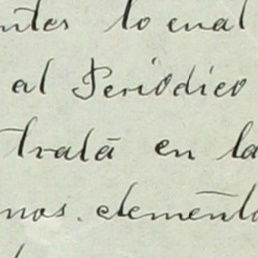 ntes lo cual
al Periódico
trata en la
nos. elemento